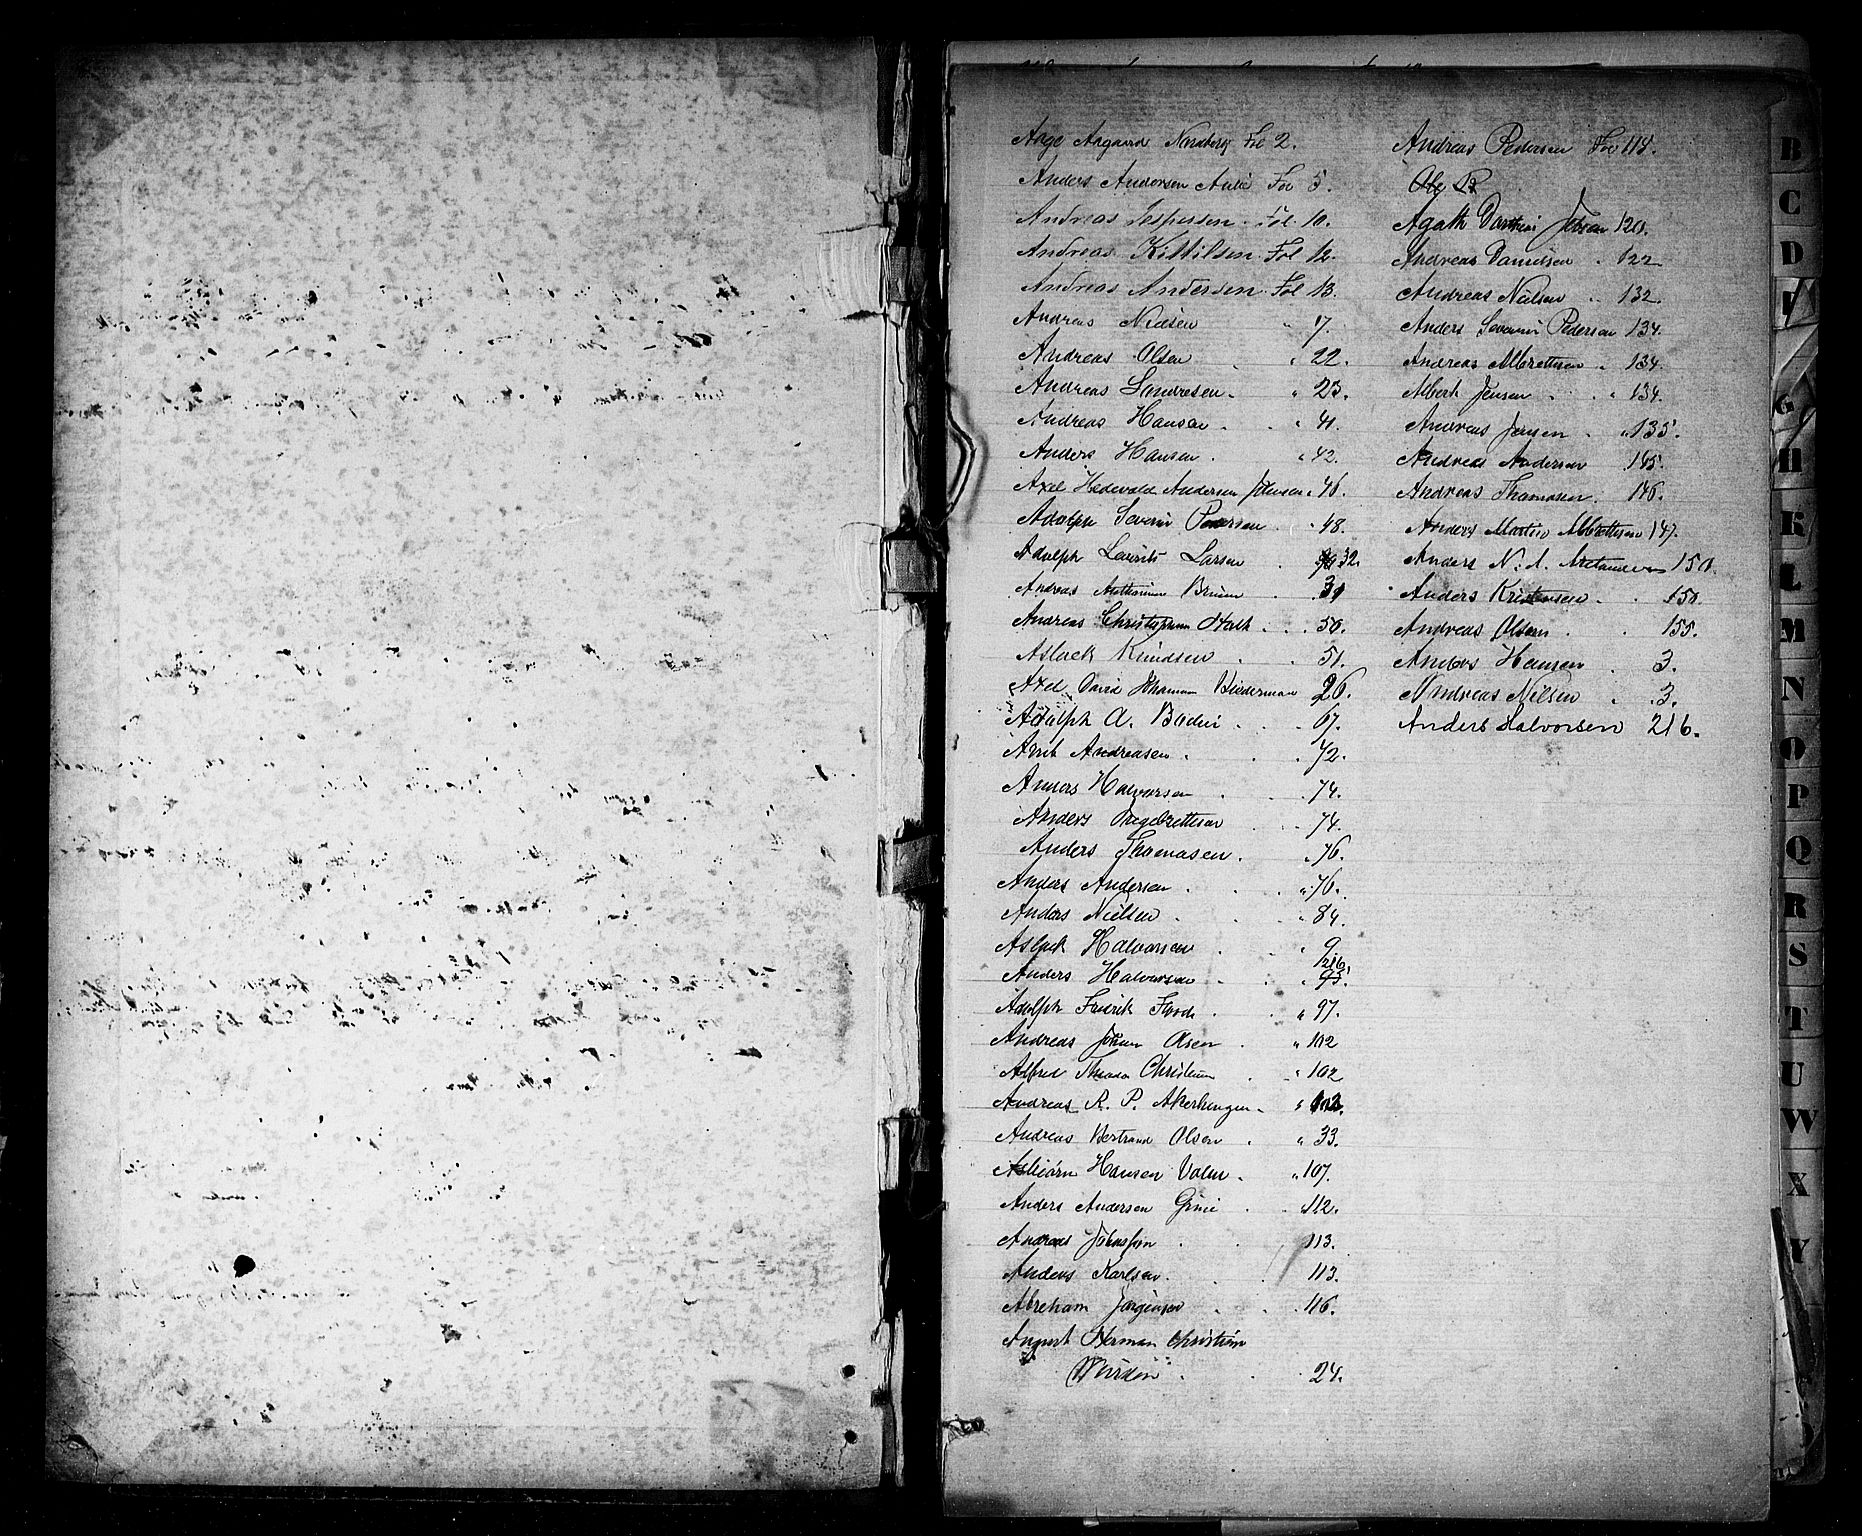 Aage Aagaard Nordberg Fol 2.
Anders Andersen Fol 5.
Andreas Jespersen Fol 10.
Andreas Kittilsen Fol 12.
Andreas Andersen Fol 13.
Andreas Nielsen " 17.
Andreas Olsen " 22.
Andreas " 23.
Andreas Hansen " 41.
Anders Hansen " 42.
Axel Andersen Johnsen " 46.
Adolph Severin Pedersen " 48.
Adolph Lauritz Larsen 32.
Andreas Bruun 31
Andreas Christophersen Holth 50.
Aslack Knudsen 51.
Axel David Biederman 26.
Adolph A. Badin 67.
Arnt Andreasen 72.
Anders Halvorsen 74.
Anders Engebrettsen 74.
Anders Thomasen " 76.
Anders Andersen " 76.
Anders Nielsen " 84.
Aslack Halvorsen " 9
Anders Halvorsen 216. 95.
Adolph Fredrik Floode " 97.
Andreas Johan Olsen " 102
Alfred Christensen " 102
Andreas R. P. " 102.
Andreas Bertrand Olsen " 33.
Asbiørn Hansen Valen " 107.
Anders Andersen 112.
Andreas 113.
Anders Karlsen. 113.
Abreham Jørgensen 116.
August Herman Christian
24.
Andreas Pedersen Fol 118.
Ole P
Agath Jebsen 120.
Andreas Danielsen " 122
Andreas Nielsen " 132.
Anders Severin Pedersen 134.
Andreas Albrettsen 134.
Albert Jensen " 134.
Andreas Jensen " 135.
Andreas Andersen 145.
Andreas Thomasen. 146.
Anders Martin Albrettsen 147.
Anders N. A. 150.
Anders Kristensen 150.
Andreas Olsen 155.
Anders Hansen 3.
Andreas Nilsen 3.
Anders Halvorsen 216.
B
C
D
G
H
K
L
M
N
O
P
Q
R
S
T
U
W
X
Y